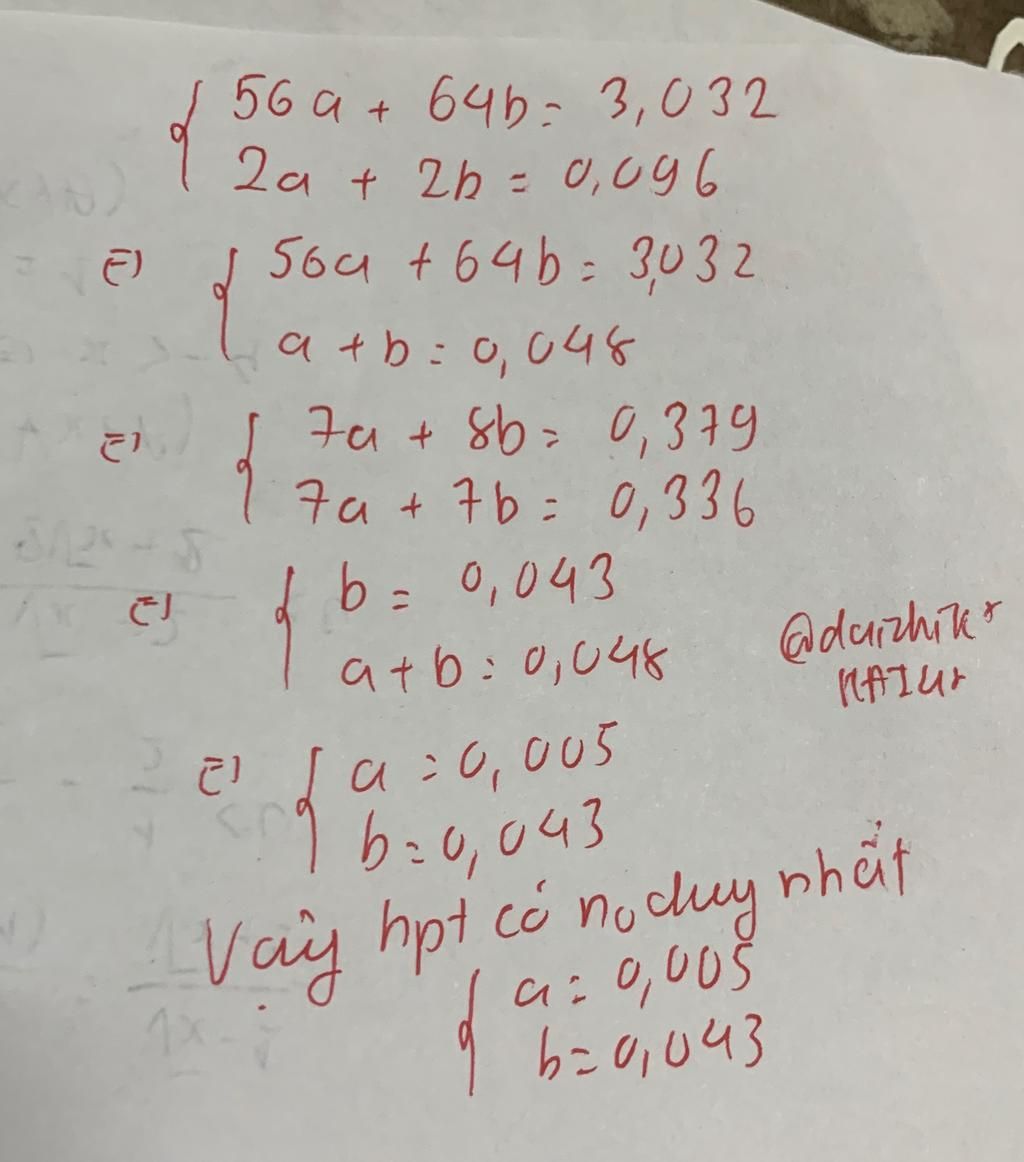 { 56a + 64b = 3,032
2a + 2b = 0,096
⇔ { 56a + 64b = 3,032
a + b = 0,048
⇔ { 7a + 8b = 0,379
7a + 7b = 0,336
⇔ { b = 0,043
a + b = 0,048
⇔ { a = 0,005
b = 0,043
Vậy hpt có no duy nhất
{ a = 0,005
b = 0,043